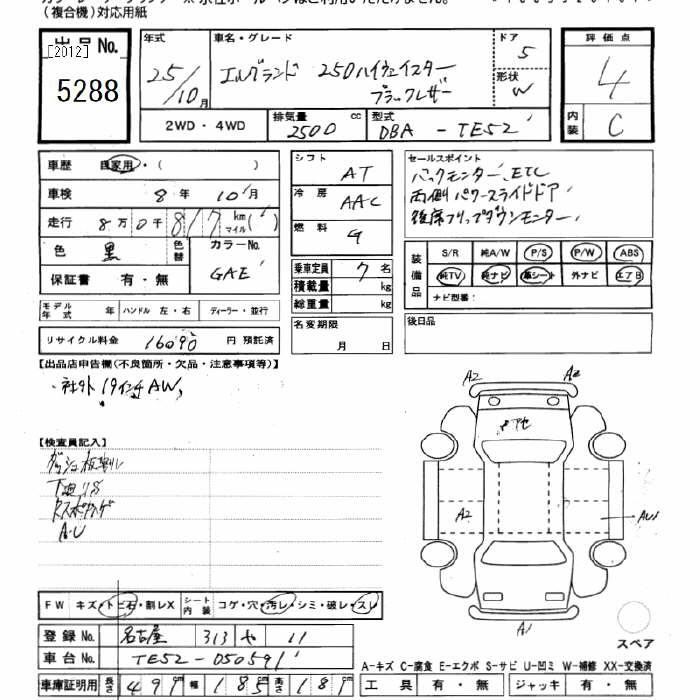 (複合機)対応用紙
出品No.
[2012]
5288
年式
25/10月
車名・グレード
エルグランド 250ハイウェイスター
ブラックレザー
ドア
5
形状
W
評価点
4
内装
C
2WD・4WD
排気量
2500
cc
型式
DBA - TE52
車歴
自家用・( )
車検
8年 10月
走行
8万0千817
km
マイル( )
色
黒
色替
カラーNo.
GAE
保証書
有・無
モデル年式
年
ハンドル 左・右
ディーラー・並行
リサイクル料金
16090
円 預託済
シフト
AT
冷房
AAC
燃料
G
乗車定員
7名
積載量
kg
総重量
kg
名変期限
月 日
セールスポイント
バックモニター、ETC
両側パワースライドドア
後席フリップダウンモニター
装備品
S/R
純A/W
P/S
P/W
ABS
純TV
純ナビ
革シート
外ナビ
エアB
ナビ型番:
後日品
【出品店申告欄(不良箇所・欠品・注意事項等)】
・社外19インチAW
【検査員記入】
A・U
A2
A2
A2
AU1
A1
スペア
FW キズ・トビ石・割レX
シート内装
コゲ・穴・汚レ・シミ・破レ・スレ
登録No.
名古屋 313 や 11
車台No.
TE52-050591
車庫証明用
長さ
491
幅
185
高さ
181
A-キズ C-腐食 E-エクボ S-サビ U-凹ミ W-補修 XX-交換済
工具
有・無
ジャッキ
有・無